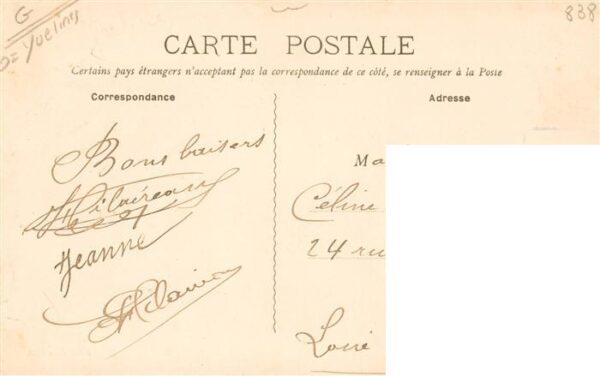 G
D= Yvelines
838
CARTE POSTALE
Certains pays étrangers n'acceptant pas la correspondance de ce côté, se renseigner à la Poste
Correspondance
Adresse
Bons baisers
Jeanne
Ma
Céline
24 ru
Loire